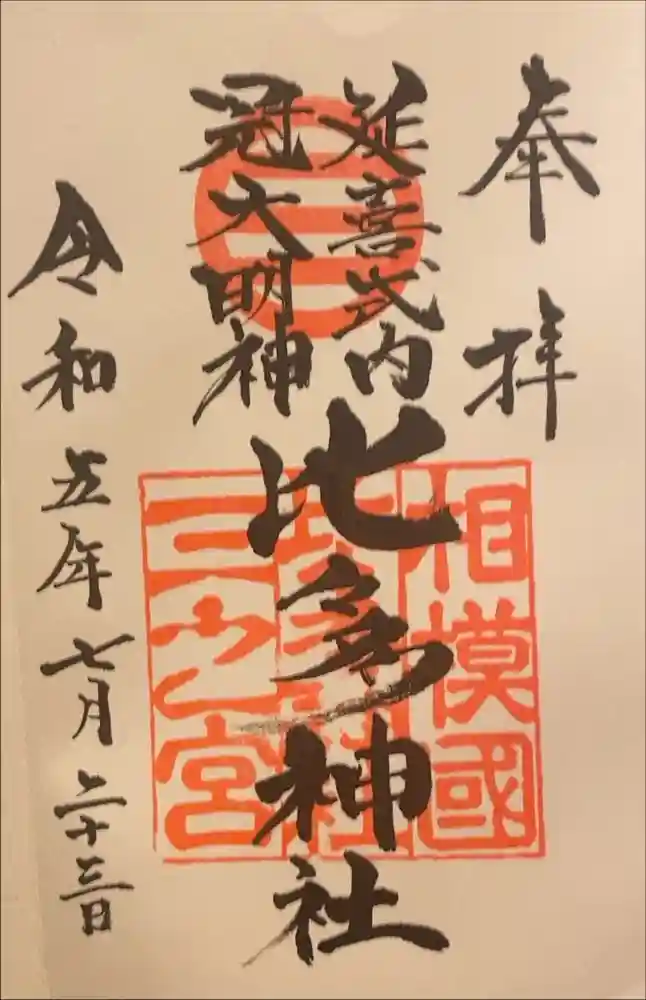 奉拝
延喜式内
冠大明神
比多神社
令和五年七月二十三日
相模國
三之宮